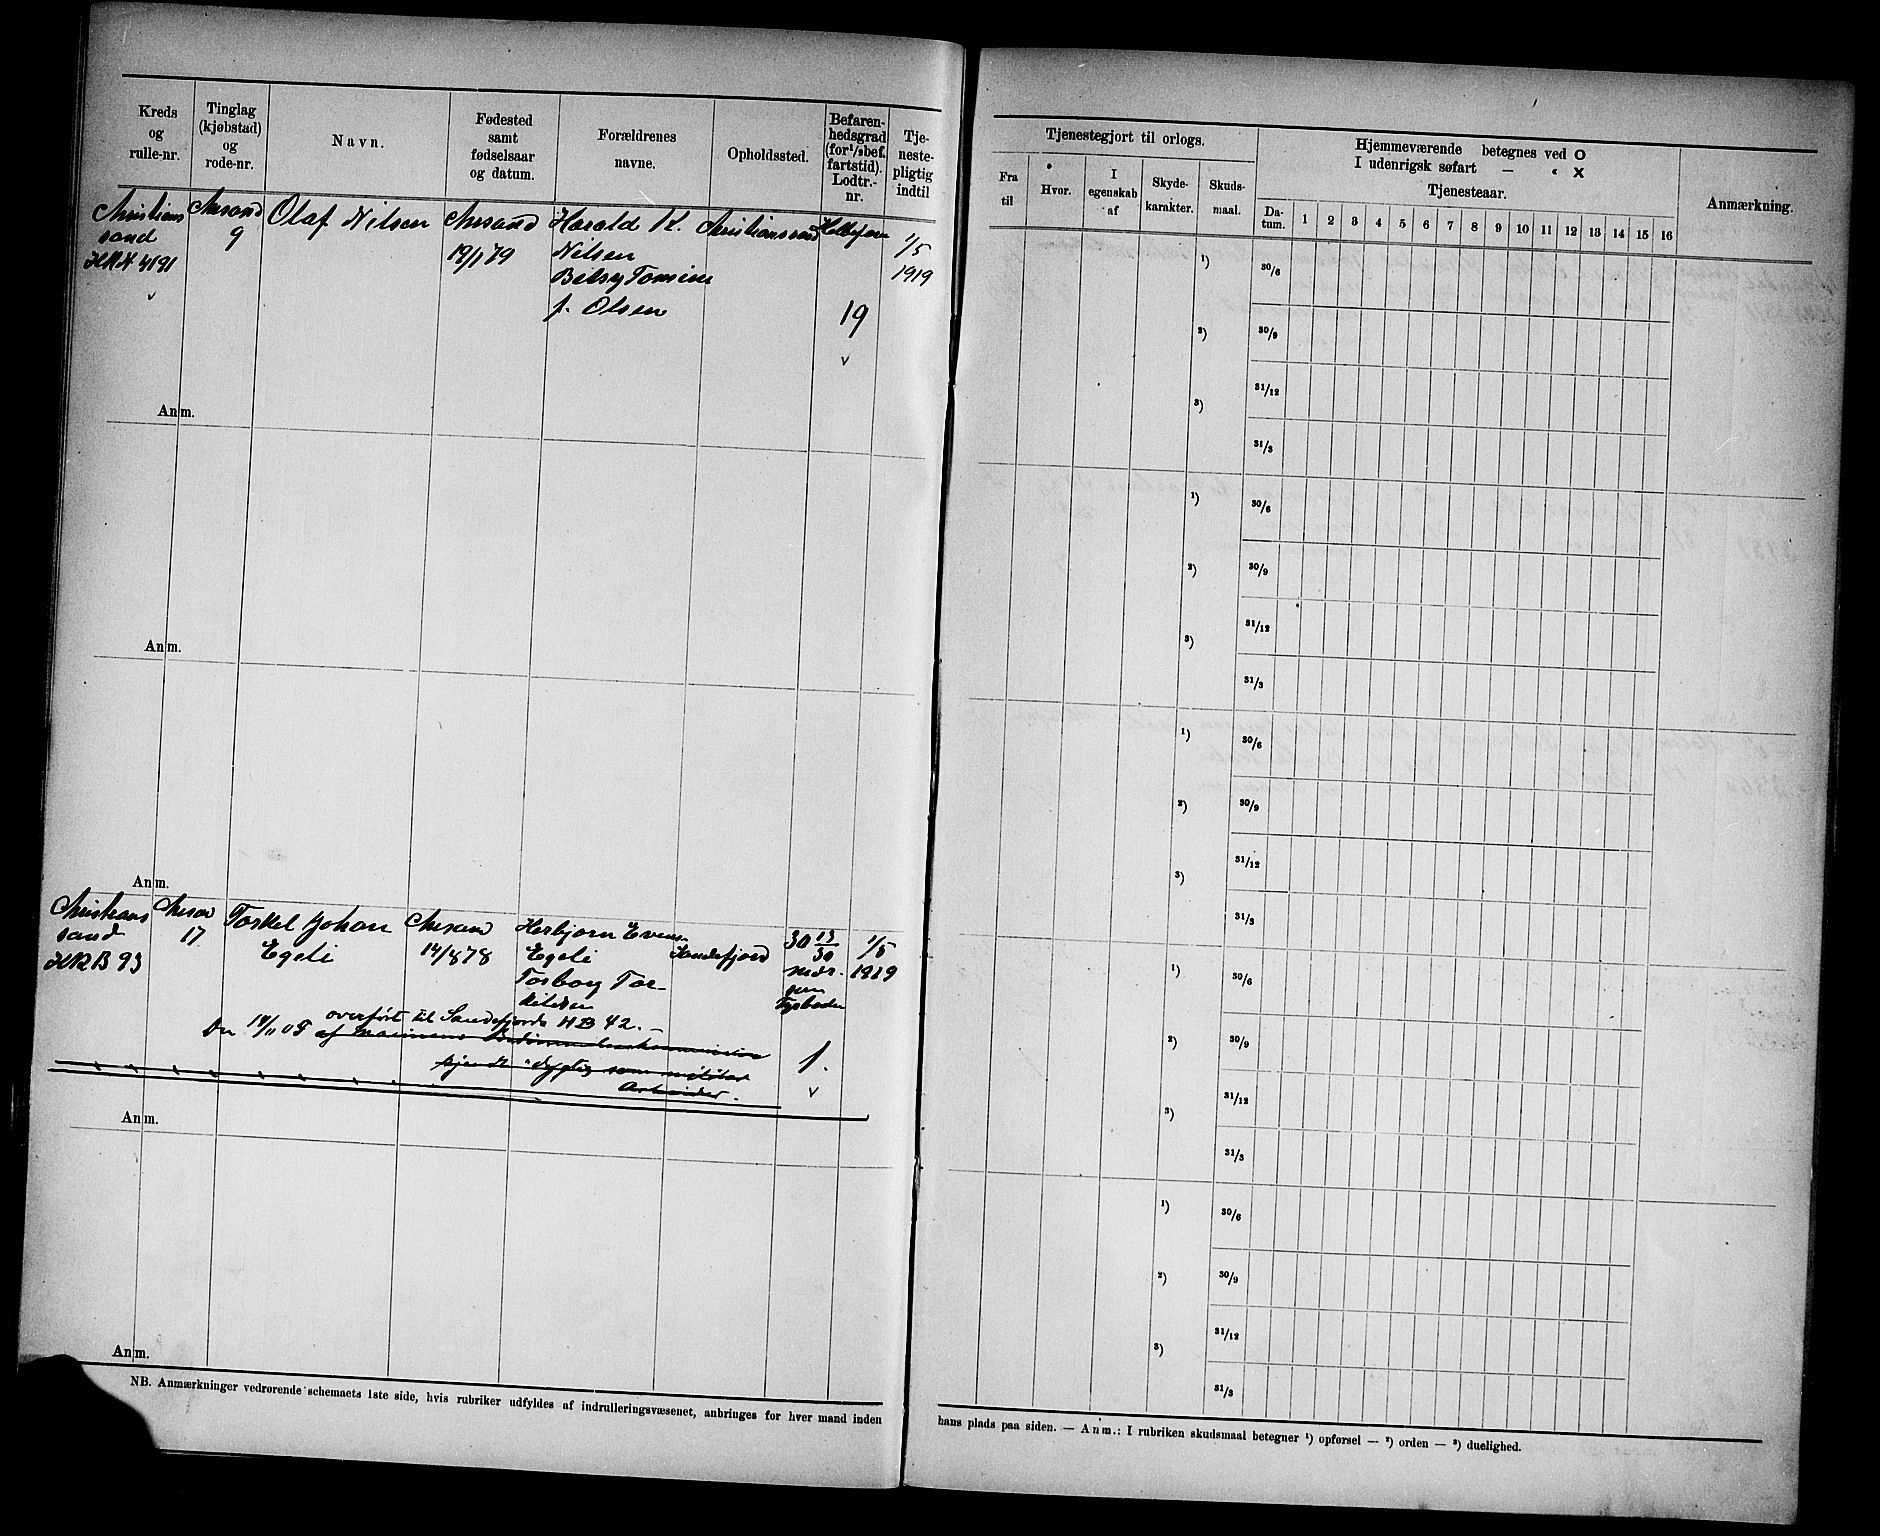 Kreds
og
rulle-nr.
Tinglag
(kjøbstad)
og
rode-nr.
Navn.
Fødested
samt
fødselsaar
og datum.
Forældrenes
navne.
Opholdssted.
Befaren-
hedsgrad
(for 1/2 bef.
fartstid).
Lodtr.-
nr.
Tje-
neste-
pligtig
indtil
Christians
sand
Chrsand
9
Olaf Nilsen
Chrsand
19/1 79
Harald K.
Nilsen
Betsy Tomine
f. Olsen
Christianssand
Helbefaren
19
v
1/5
1919
Anm.
Anm.
Anm.
Christians
sand
HRB 93
17
Torkel Johan
Egeli
Chrsand
14/8 78
Herbjørn Evens.
Egeli
Torborg Tor-
kildsen
Sandefjord
30 13/30
mdr.
som
Fyrbøder
1.
v
1/5
1919
overført til Sandefjords HB 42.
kjendt "dygtig som militær
Arbeider".
Anm.
Anm.
NB. Anmærkninger vedrørende schemaets 1ste side, hvis rubriker udfyldes af indrulleringsvæsenet, anbringes for hver mand inden
Tjenestegjort til orlogs.
Fra
til
Hvor.
I
egenskab
af
Skyde-
karakter.
Skuds-
maal.
Hjemmeværende betegnes ved O
I udenrigsk søfart — " X
Tjenesteaar.
Da-
tum.
1 2 3 4 5 6 7 8 9 10 11 12 13 14 15 16
Anmærkning.
1) 30/6
2) 30/9
31/12
3)
31/3
1) 30/6
2) 30/9
31/12
3)
31/3
1) 30/6
2) 30/9
31/12
3)
31/3
1) 30/6
2) 30/9
31/12
3)
31/3
1) 30/6
2) 30/9
31/12
3)
31/3
hans plads paa siden. — Anm.: I rubriken skudsmaal betegner 1) opførsel — 2) orden — 3) duelighed.